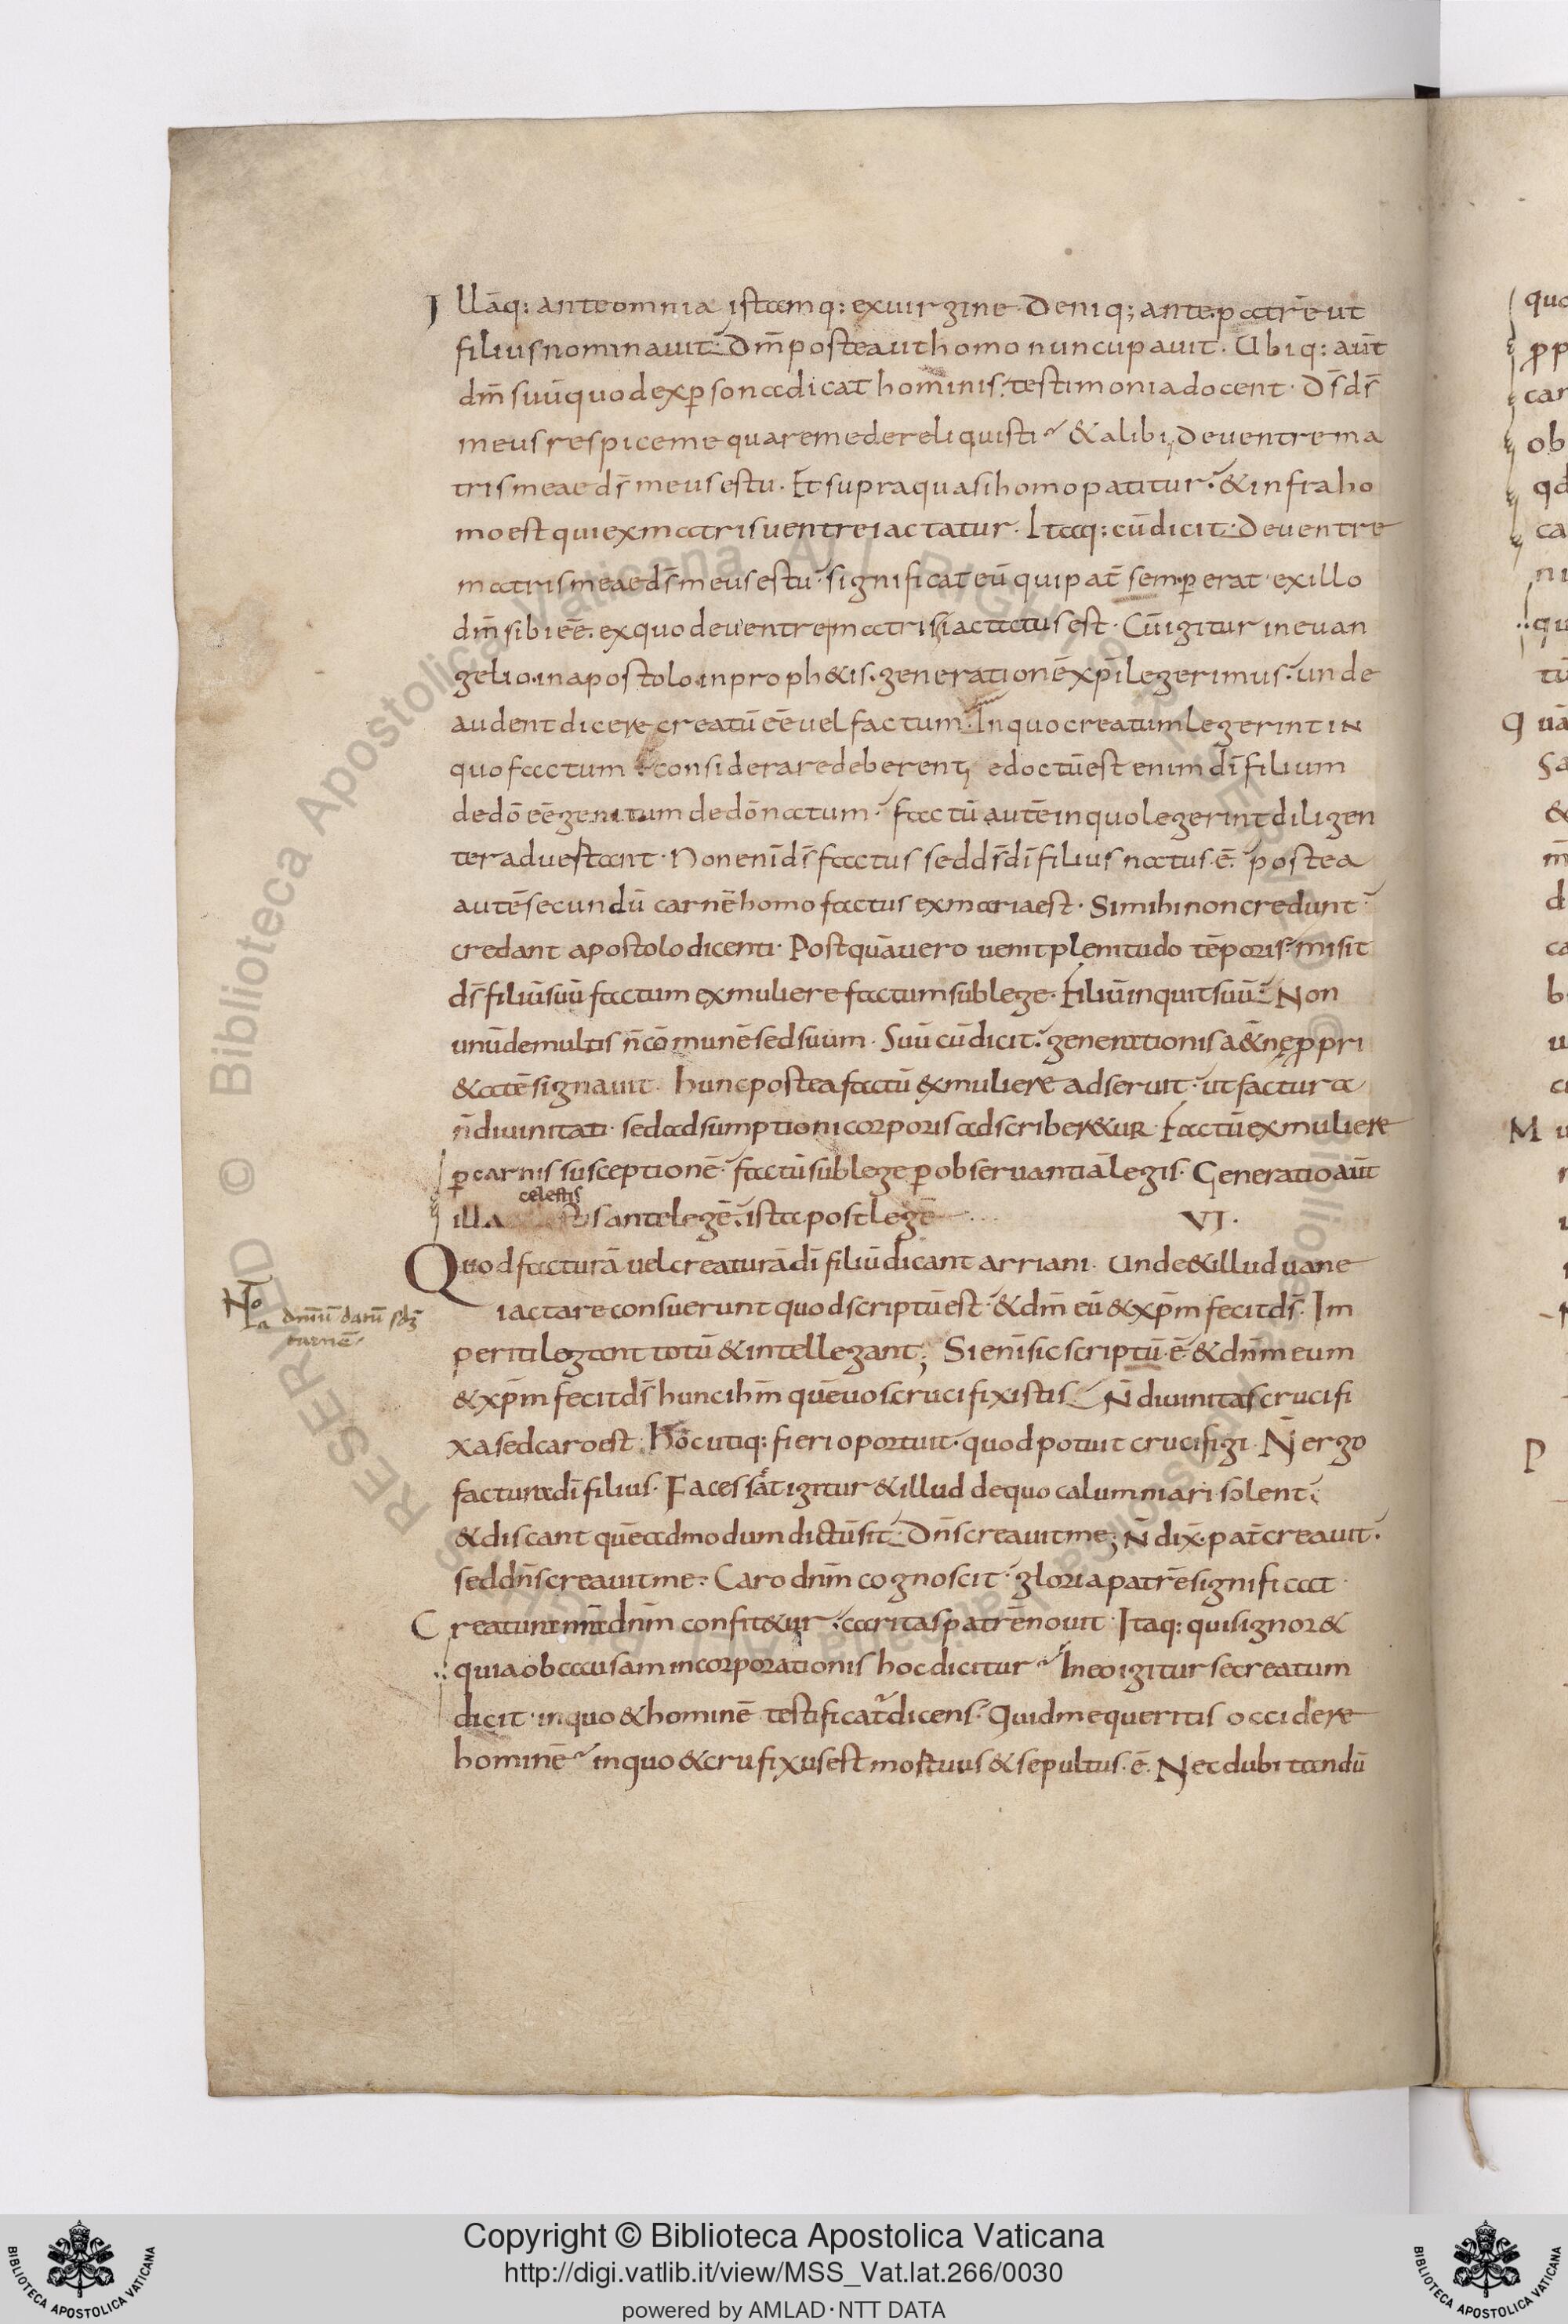 Illāq: ante omnia istamq: ex uirgine. Deniq; ante patrē ut
filius nominauit. Dm̄ postea ut homo nuncupauit. Ubiq: aūt
dm̄ suū quod ex ꝑsona dicat hominis. testimonia docent. Ds̄ ds̄
meus respice me quare me dereliquisti & alibi, De uentre ma
tris meae ds̄ meus es tu. Et supra quasi homo patitur. & infra ho
mo est qui ex matris uentre iactatur. Itaq: cū dicit. De uentre
matris meae ds̄ meus es tu. significat eū qui pat̄ semꝑ erat. ex illo
dm̄ sibi eē. ex quo de uentre matris iactatus est. Cū igitur in euan
gelio. in apostolo. in proph&is. generationē xp̄i legerimus. unde
audent dicere creatū eē uel factum. In quo creatum legerint in
quo factum considerare deberent, edoctū est enim dī filium
de dō eē genitum de dō natum. factū autē in quo legerint diligen
ter aduertant. Non enī ds̄ factus sed ds̄ dī filius natus. ē. postea
autē secundū carnē homo factus ex maria est. Si mihi non credunt
credant apostolo dicenti. Postquā uero uenit plenitudo tēporis. misit
ds̄ filiū suū factum ex muliere factum sub lege. Filiū inquit suū. Non
unū de multis n̄ cōmunē sed suum. Suū cū dicit. generationis a&nę ꝓpri
&atē signauit. hunc postea factū ex muliere adseruit. ut factura
n̄ diuinitati. sed adsumptioni corporis adscriber&ur. Factū ex muliere
ꝑ carnis susceptionē. factū sub lege ꝑ obseruantiā legis. Generatio aūt
celestis
illa s ante legē. ista post legē VI.
Quod facturā uel creaturā dī filiū dicant arriani. Unde & illud uane
Nota
dnm̄ datū scdm̄
carnē
iactare consuerunt quod scriptū est. & dm̄ eū & xp̄m fecit ds̄. Im
periti legant totū & intellegant; Si enī sic scriptū. ē. & dnm̄ eum
& xp̄m fecit ds̄ hunc ihm̄ quē uos crucifixistis. N̄ diuinitas crucifi
xa sed caro est. Hoc utiq: fieri oportuit. quod potuit crucifigi. N̄ ergo
factura dī filius. Facessat igitur & illud de quo calumniari solent.
& discant quēadmodum dictū sit. Dn̄s creauit me; N̄ dix. pat̄ creauit.
sed dn̄s creauit me. Caro dnm̄ cognoscit. gloria patrē significat.
Creatura nr̄a dnm̄ confit&ur. caritas patrē nouit. Itaq: quis ignor&
quia ob causam incorporationis hoc dicitur In eo igitur se creatum
dicit. in quo & hominē testificat̄ dicens. Quid me queritis occidere
hominē in quo & crufixus est mortuus & sepultus. ē. Nec dubitandū
Copyright © Biblioteca Apostolica Vaticana
http://digi.vatlib.it/view/MSS_Vat.lat.266/0030
powered by AMLAD·NTT DATA